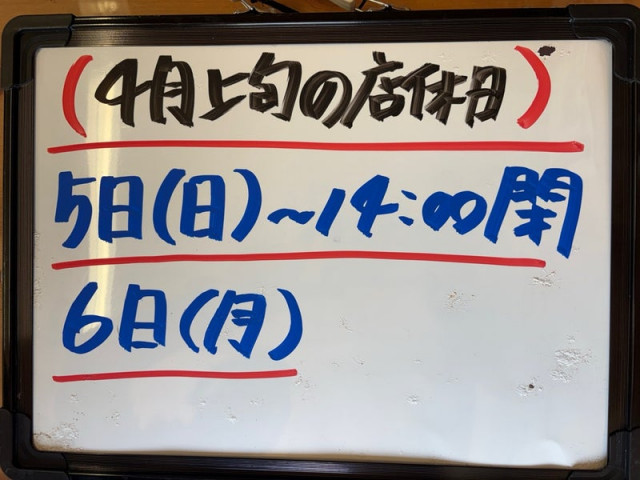 (4月上旬の店休日)
5日(日)~14:00閉
6日(月)